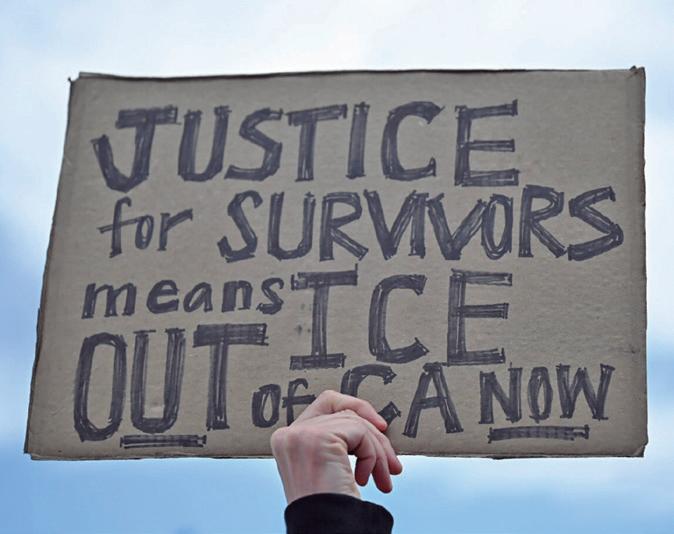 JUSTICE
for SURVIVORS
means ICE
OUT of CA NOW